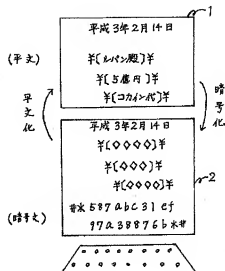 1
平成3年2月14日
(平文)
¥[ルパン殿]¥
¥[5億円]¥
¥[コカイン代]¥
平文化
暗号化
平成3年2月14日
¥[◇◇◇◇]¥
¥[◇◇◇◇]¥
¥[◇◇◇◇]¥
2
(暗号文)
#水587abc31ef
97a38876b水#